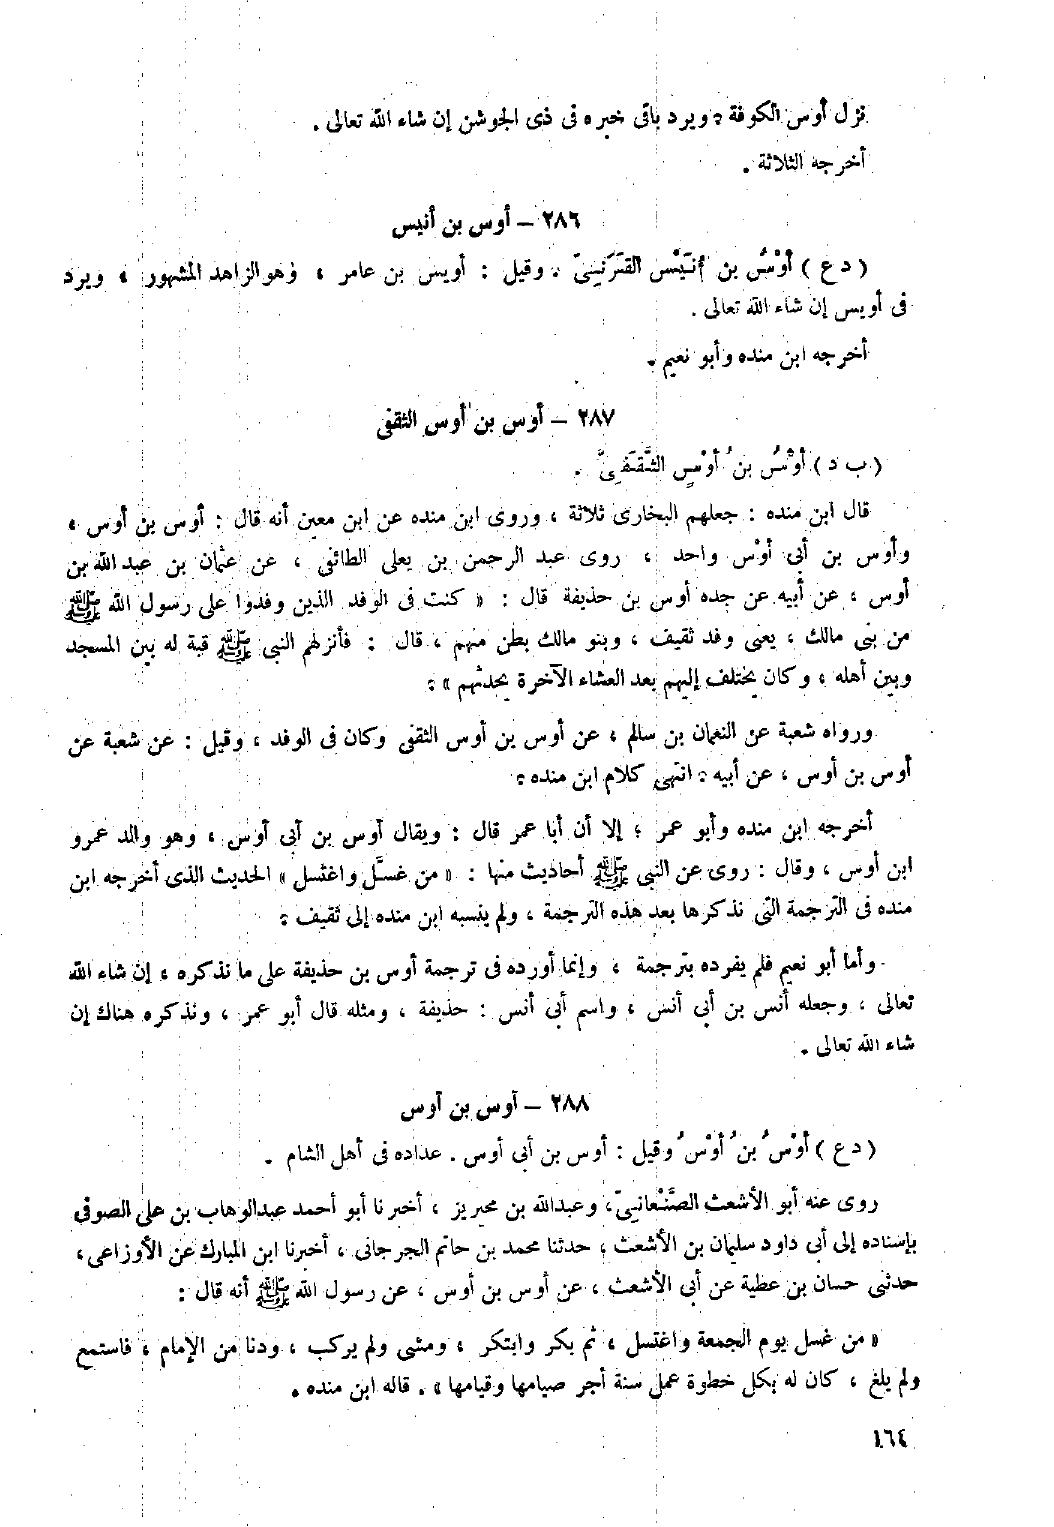 نزل أوس الكوفة ، ويرد باقى خبره فى ذى الجوشن إن شاء الله تعالى .
أخرجه الثلاثة .
٢٨٦ – أوس بن أنيس
( د ع ) أوْسُ بن أُنَيْس القَرَنِىّ ، وقيل : أويس بن عامر ، وهو الزاهد المشهور ، ويرد
فى أويس إن شاء الله تعالى .
أخرجه ابن منده وأبو نعيم .
٢٨٧ – أوس بن أوس الثقفى
( ب د ) أوْسُ بنُ أوْسٍ الثَّقَفِىَّ .
قال ابن منده : جعلهم البخارى ثلاثة ، وروى ابن منده عن ابن معين أنه قال : أوس بن أوس ،
وأوس بن أبى أوْس واحد ، روى عبد الرحمن بن يعلى الطائفى ، عن عثمان بن عبد الله بن
أوس ، عن أبيه عن جده أوس بن حذيفة قال : « كنت فى الوفد الذين وفدوا على رسول الله ﷺ
من بنى مالك ، يعنى وفد ثقيف ، وبنو مالك بطن منهم ، قال : فأنزلهم النبى ﷺ قبة له بين المسجد
وبين أهله ، وكان يختلف إليهم بعد العشاء الآخرة يحدثهم » :
ورواه شعبة عن النعمان بن سالم ، عن أوس بن أوس الثقفى وكان فى الوفد ، وقيل : عن شعبة عن
أوس بن أوس ، عن أبيه ؛ انتهى كلام ابن منده ؛
أخرجه ابن منده وأبو عمر ؛ إلا أن أبا عمر قال : ويقال أوس بن أبى أوس ، وهو والد عمرو
ابن أوس ، وقال : روى عن النبى ﷺ أحاديث منها : « من غسَّل واغتسل » الحديث الذى أخرجه ابن
منده فى الترجمة التى نذكرها بعد هذه الترجمة ، ولم ينسبه ابن منده إلى ثقيف :
وأما أبو نعيم فلم يفرده بترجمة ، وإنما أورده فى ترجمة أوس بن حذيفة على ما نذكره ، إن شاء الله
تعالى ، وجعله أنس بن أبي أنس ، واسم أبى أنس : حذيفة ، ومثله قال أبو عمر ، ونذكره هناك إن
شاء الله تعالى .
٢٨٨ – أوس بن أوس
( د ع ) أوْسُ بنُ أوْسُ وقيل : أوس بن أبى أوس . عداده فى أهل الشام .
روى عنه أبو الأشعث الصَّنْعانىّ، وعبدالله بن محيريز ، أخبرنا أبو أحمد عبدالوهاب بن على الصوفى
بإسناده إلى أبى داود سليمان بن الأشعث ؛ حدثنا محمد بن حاتم الجرجانى ، أخبرنا ابن المبارك عن الأوزاعى ،
حدثنى حسان بن عطية عن أبى الأشعث ، عن أوس بن أوس ، عن رسول الله ﷺ أنه قال :
« من غسل يوم الجمعة واغتسل ، ثم بكر وابتكر ، ومشى ولم يركب ، ودنا من الإمام ، فاستمع
ولم يلغ ، كان له بكل خطوة عمل سنة أجر صيامها وقيامها » . قاله ابن منده .
١٦٤